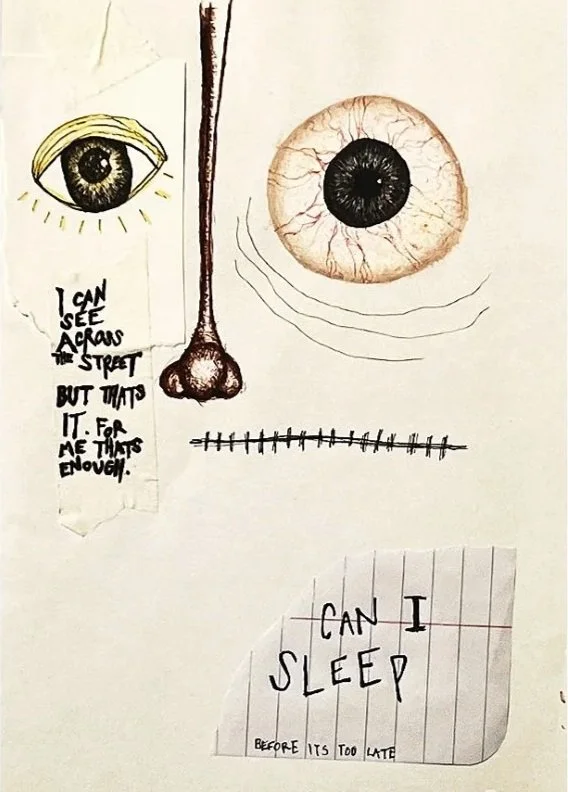 I CAN
SEE
ACROSS
THE STREET
BUT THATS
IT. FOR
ME THATS
ENOUGH.
CAN I
SLEEP
BEFORE ITS TOO LATE